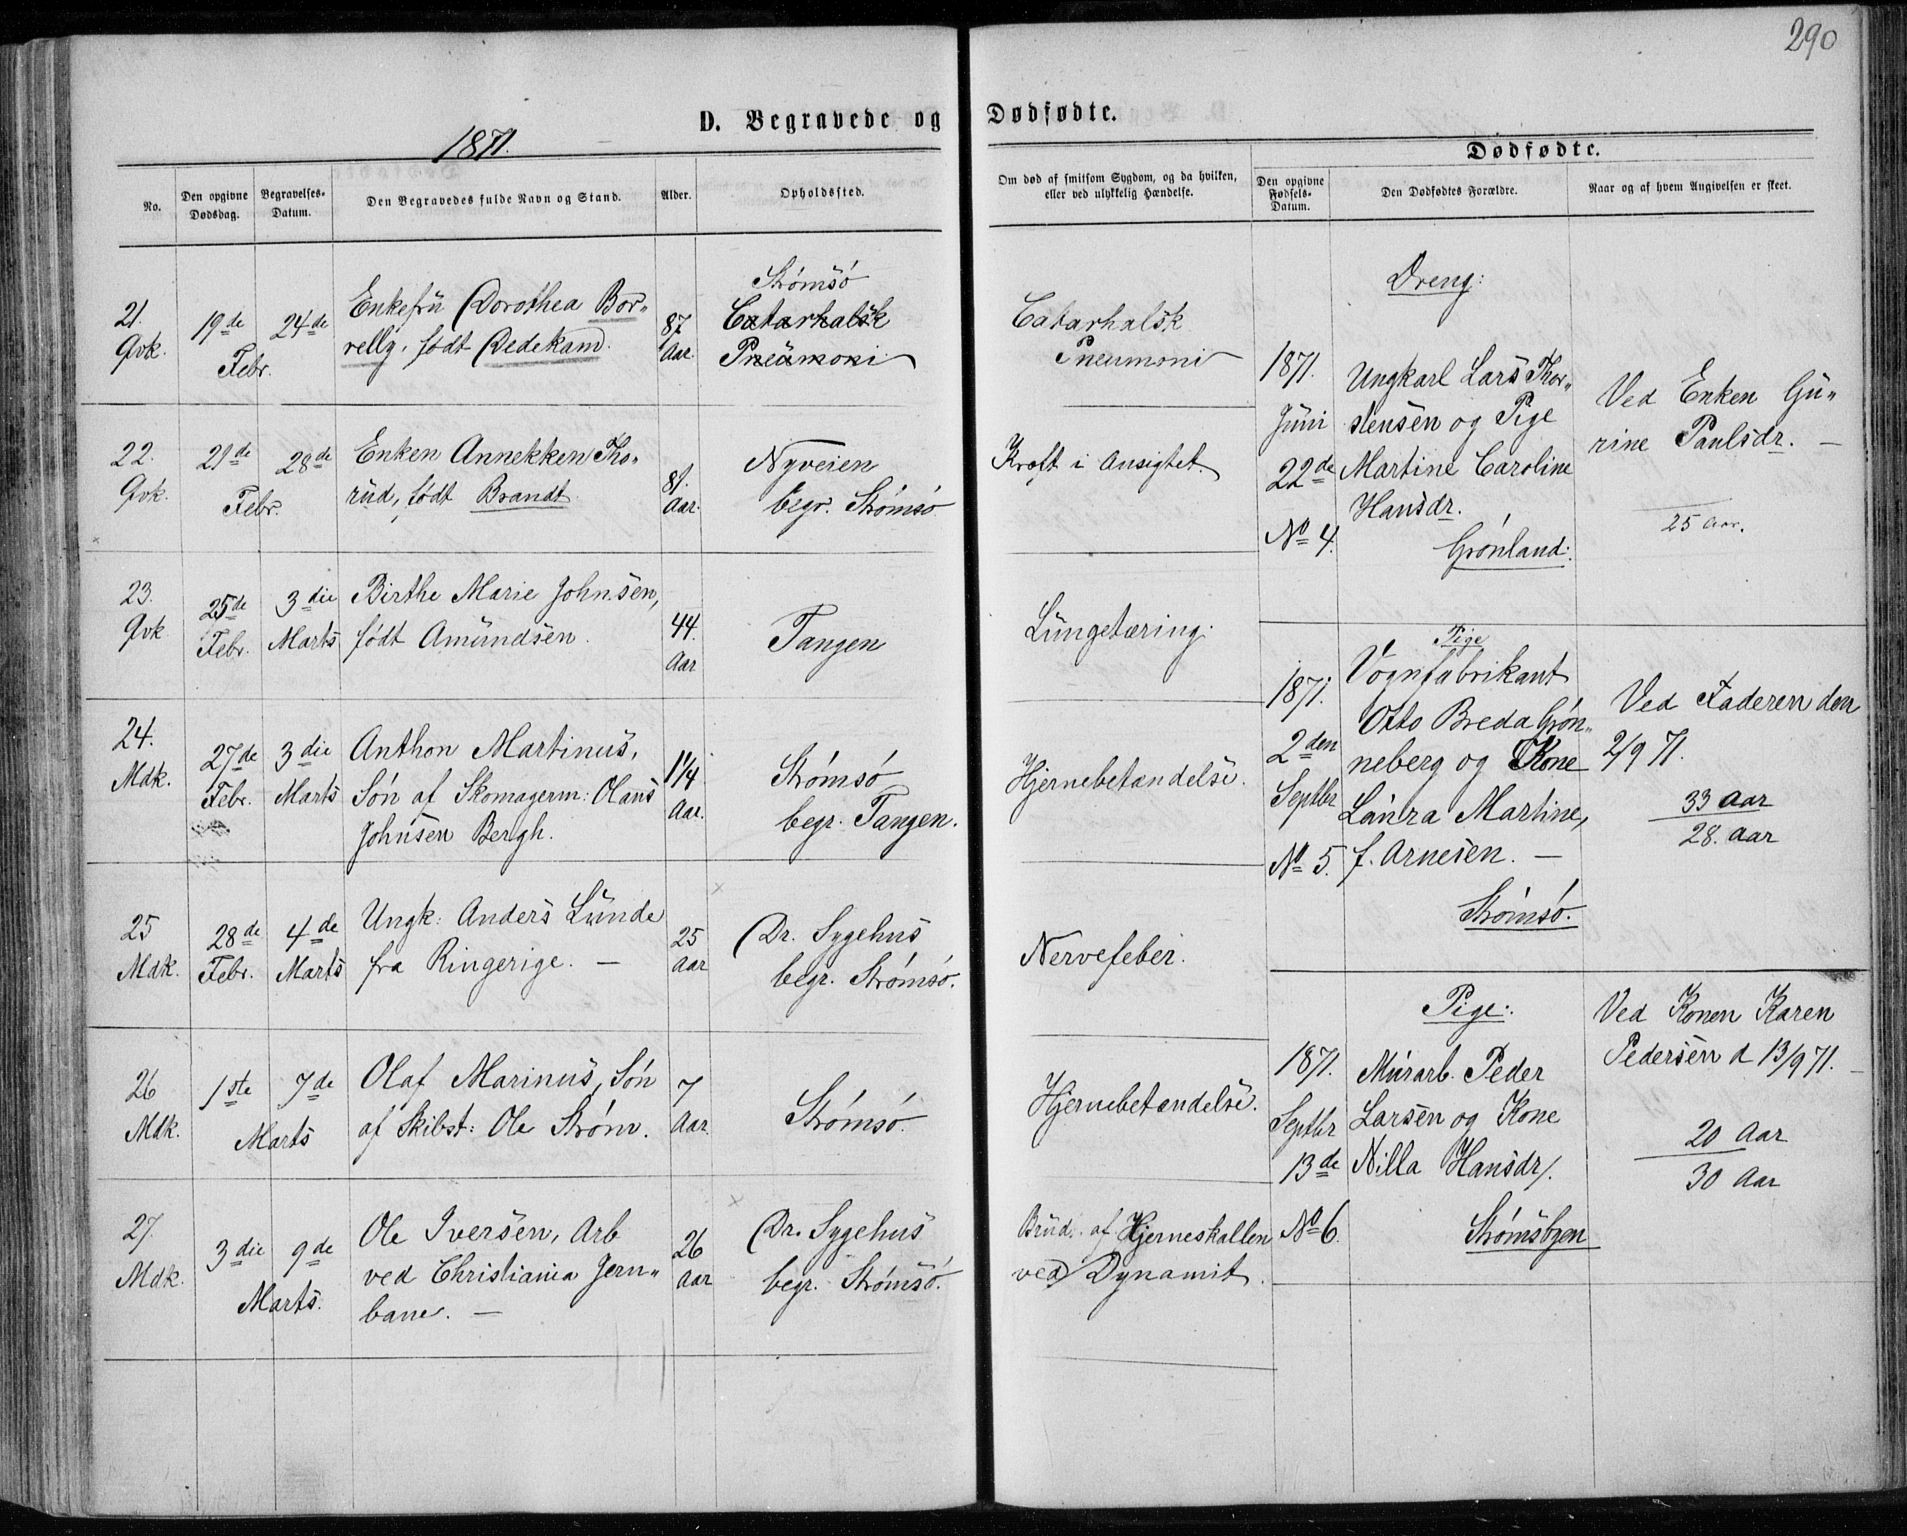 290
D. Begravede og Dødfødte.
1871.
Dødfødte.
No.
Den opgivne Dødsdag.
Begravelses-Datum.
Den Begravedes fulde Navn og Stand.
Alder.
Opholdssted.
Om død af smitsom Sygdom, og da hvilken, eller ved ulykkelig Hændelse.
Den opgivne Fødsels-Datum.
Den Dødfødtes Forældre.
Naar og af hvem Angivelsen er skeet.
21.
Qvk.
19de
24de
Febr.
Enkefru Dorothea Bor-
relly, født Redekam.
87
Aar.
Strømsø
Catarhalsk
Pneumoni
Catarhalsk
Pneumoni
22.
Qvk.
21de
28de
Febr.
Enken Annekken Tho-
rud, født Brandt.
81.
Aar.
Nyveien
begr. Strømsø
Kræft i Ansigtet.
23.
Qvk
25de
Febr.
3die
Marts
Birthe Marie Johnsen,
født Amundsen.
44.
Aar
Tangen
Lungetæring.
24.
Mdk.
27de
Febr.
3die
Marts
Anthon Martinus,
Søn af Skomagerm: Olaus
Johnsen Bergh.
1 1/4
Aar.
Strømsø
begr. Tangen.
Hjernebetændelse.
25
Mdk.
28de
Febr.
4de
Marts
Ungk: Anders Lunde
fra Ringerige. —
25
Aar
Dr. Sygehus
begr. Strømsø.
Nervefeber.
26
Mdk.
1ste
7de
Marts
Olaf Marinus, Søn
af Skibst: Ole Strøm.
7
Aar.
Strømsø.
Hjernebetændelse.
27.
Mdk.
3die
9de
Marts.
Ole Iversen, Arb
ved Christiania Jern-
bane. —
26
Aar
Dr. Sygehus
begr. Strømsø.
Brud. af Hjerneskallen
ved Dynamit.
1871.
Juni
22de
No 4.
Dreng:
Ungkarl Lars Thor-
stensen og Pige
Martine Caroline
Hansdr.
Grønland:
Ved Enken Gu-
rine Paulsdr. —
25 Aar.
1871.
2den
Septbr
No 5.
Pige
Vognfabrikant
Otto Breda Grøn-
neberg og Kone
Laura Martine,
f. Arnesen. —
Strømsø.
Ved Faderen den
2/9 71.
33 Aar
28. Aar
1871.
Septbr
13de
No 6.
Pige:
Murarb. Peder
Larsen og Kone
Nilla Hansdr.
Strømsbyen
Ved Konen Karen
Pedersen d 13/9 71. —
20 Aar
30 Aar